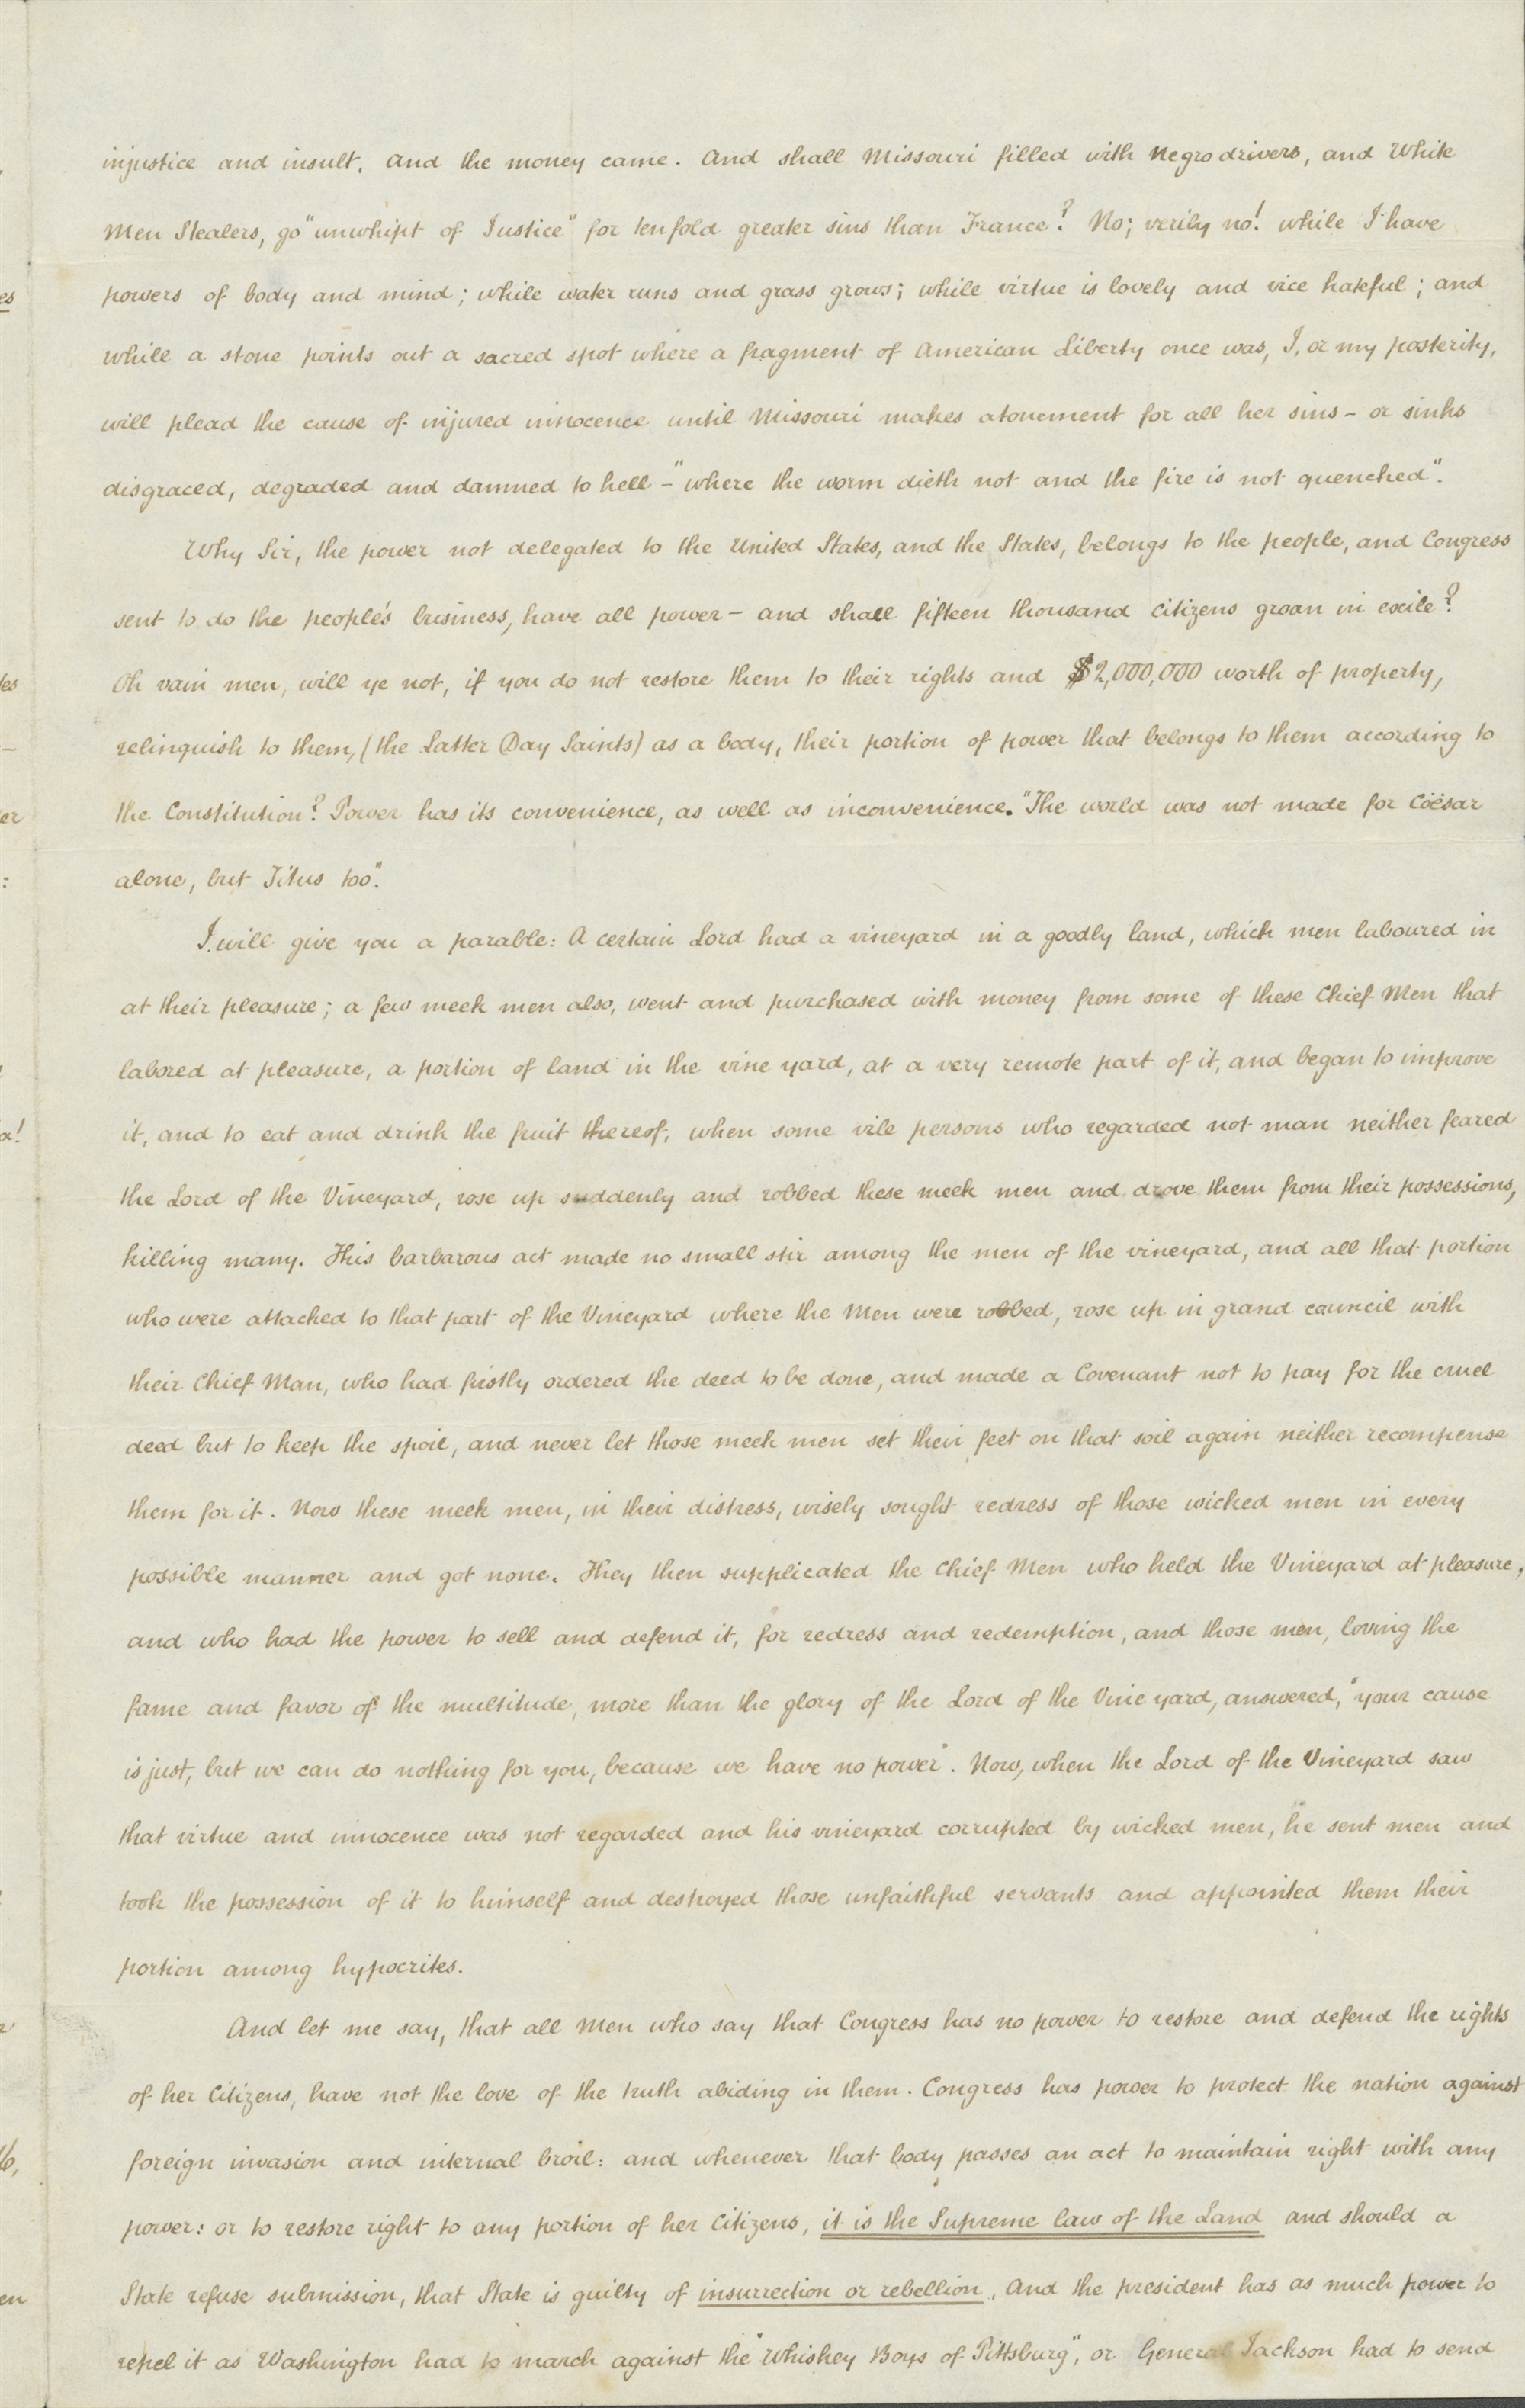 injustice and insult. And the money came. And shall Missouri filled with Negro drivers, and White
Men Stealers, go "unwhipt of Justice" for tenfold greater sins than France? No; verily no! while I have
powers of body and mind; while water runs and grass grows; while virtue is lovely and vice hateful; and
while a stone points out a sacred spot where a fragment of American Liberty once was, I, or my posterity,
will plead the cause of injured innocence until Missouri makes atonement for all her sins – or sinks
disgraced, degraded and damned to hell – "where the worm dieth not and the fire is not quenched".
Why Sir, the power not delegated to the United States, and the States, belongs to the people, and Congress
sent to do the people's business, have all power – and shall fifteen thousand citizens groan in exile?
Oh vain men, will ye not, if you do not restore them to their rights and $2,000,000 worth of property,
relinquish to them, (the Latter Day Saints) as a body, their portion of power that belongs to them according to
the Constitution? Power has its convenience, as well as inconvenience. "The world was not made for Cöësar
alone, but Titus too".
I will give you a parable: A certain Lord had a vineyard in a goodly land, which men laboured in
at their pleasure; a few meek men also, went and purchased with money from some of these Chief Men that
labored at pleasure, a portion of land in the vine yard, at a very remote part of it, and began to improve
it, and to eat and drink the fruit thereof, when some vile persons who regarded not man neither feared
the Lord of the Vineyard, rose up suddenly and robbed these meek men and drove them from their possessions,
killing many. This barbarous act made no small stir among the men of the vineyard, and all that portion
who were attached to that part of the Vineyard where the Men were robbed, rose up in grand council with
their Chief Man, who had firstly ordered the deed to be done, and made a Covenant not to pay for the cruel
deed but to keep the spoil, and never let those meek men set their feet on that soil again neither recompense
them for it. Now these meek men, in their distress, wisely sought redress of those wicked men in every
possible manner and got none. They then supplicated the Chief Men who held the Vineyard at pleasure,
and who had the power to sell and defend it, for redress and redemption, and those men, loving the
fame and favor of the multitude, more than the glory of the Lord of the Vine yard, answered, "your cause
is just, but we can do nothing for you, because we have no power". Now, when the Lord of the Vineyard saw
that virtue and innocence was not regarded and his vineyard corrupted by wicked men, he sent men and
took the possession of it to himself and destroyed those unfaithful servants and appointed them their
portion among hypocrites.
And let me say, that all Men who say that Congress has no power to restore and defend the rights
of her Citizens, have not the love of the truth abiding in them. Congress has power to protect the nation against
foreign invasion and internal broil: and whenever that body passes an act to maintain right with any
power: or to restore right to any portion of her Citizens, it is the Supreme law of the Land and should a
State refuse submission, that State is guilty of insurrection or rebellion, And the president has as much power to
repel it as Washington had to march against the "Whiskey Boys of Pittsburg", or General Jackson had to send